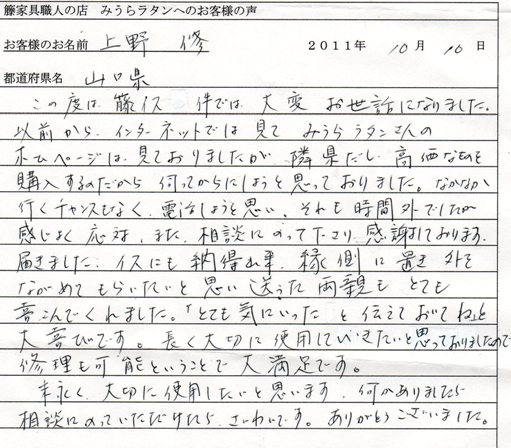 籐家具職人の店　みうらラタンへのお客様の声
お客様のお名前 上野 修 2011年 10月 10日
都道府県名 山口県
この度は 籐イス 件では 大変 お世話になりました。
以前から、インターネットでは見て みうらラタンさんの
ホームページは、見ておりましたが 隣県だし 高価なものを
購入するのだから 伺ってからにしようと思っておりました。なかなか
行くチャンスもなく、電話しようと思い、それも時間外でしたが
感じよく 応対、また、相談にのって下さり 感謝しております。
届きました、イスにも 納得出来、縁側に置き 外を
ながめてもらいたいと 思い 送った 両親も とても
喜こんでくれました。「とても気にいった」と伝えておいてねと
大喜びです。長く大切に使用していきたいと思っておりましたので
修理も可能ということで 大満足です。
末永く、大切に使用したいと思います。何かありましたら
相談にのっていただけたら、さいわいです。ありがとうございました。